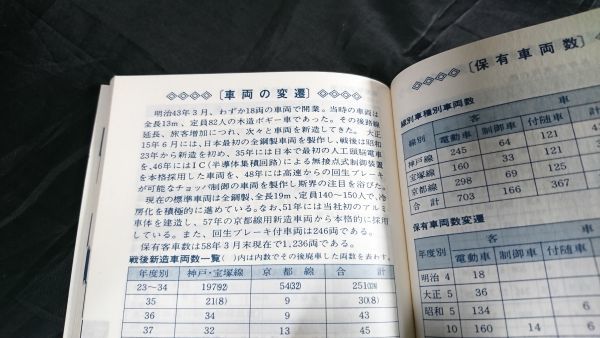 ［車両の変遷］
明治43年3月、わずか18両の車両で開業。当時の車両は
全長13m、定員82人の木造ボギー車であった。その後路線
延長、旅客増加につれ、次々と車両を新造してきた。 大正
15年6月には、日本最初の全鋼製車両を製作し、戦後は昭和
23年から新造を初め、35年には日本で最初の人工頭脳電車
を、46年にはIC(半導体集積回路)による無接点式制御装置
を本格採用した車両を、48年には高速からの回生ブレーキ
が可能なチョッパ制御の車両を製作し斯界の注目を浴びた。
現在の標準車両は全鋼製、全長19m、定員140〜150人で、冷
房化を積極的に進めている。なお、51年には当社初のアルミ
車体を建造し、57年の京都線用新造車両から本格的に採用
している。また、回生ブレーキ付車両は246両である。
保有客車数は58年3月末現在で1,236両である。
戦後新造車両数一覧( )内は内数でその後廃車した両数を表わす。
年度別 神戸・宝塚線 京都線 合計
23〜34 197(92) 54(32) 251
35 21(8) 9 30(8)
36 34 9 43
37 32 13 45
［保有車両数］
線別車種別車両数
線別 客車
電動車 制御車 付随車
神戸線 245 64 121
宝塚線 160 33 121
京都線 298 69 125
合計 703 166 367
保有車両数変遷
年度別 客
電動車 制御車 付随車
明治4 18
大正5 36
昭和5 134
10 160 14 6